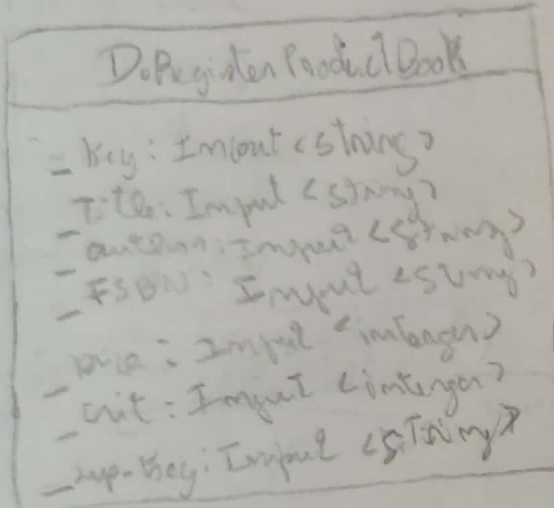 DoRegisterProductBook
- Key: Input <string>
- Title: Input <string>
- author: Input <string>
- ISBN: Input <string>
- price: Input <integer>
- crit: Input <intenger>
- sup-Key: Input <string>